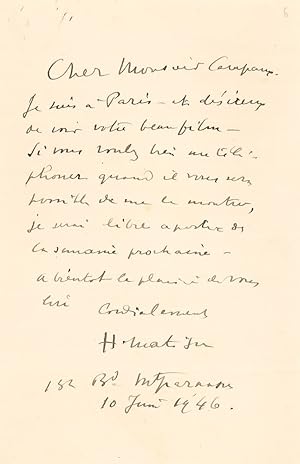 Cher Monsieur Campaux.
Je suis à Paris – et désireux
de voir votre beau film –
Si vous voulez bien me télé-
phoner quand il vous sera
possible de me le montrer,
je serai libre à partir de
la semaine prochaine –
à bientôt le plaisir de vous
lire Cordialement
H. Matisse
132 Bd Mtparnasse
10 Juin 1946.